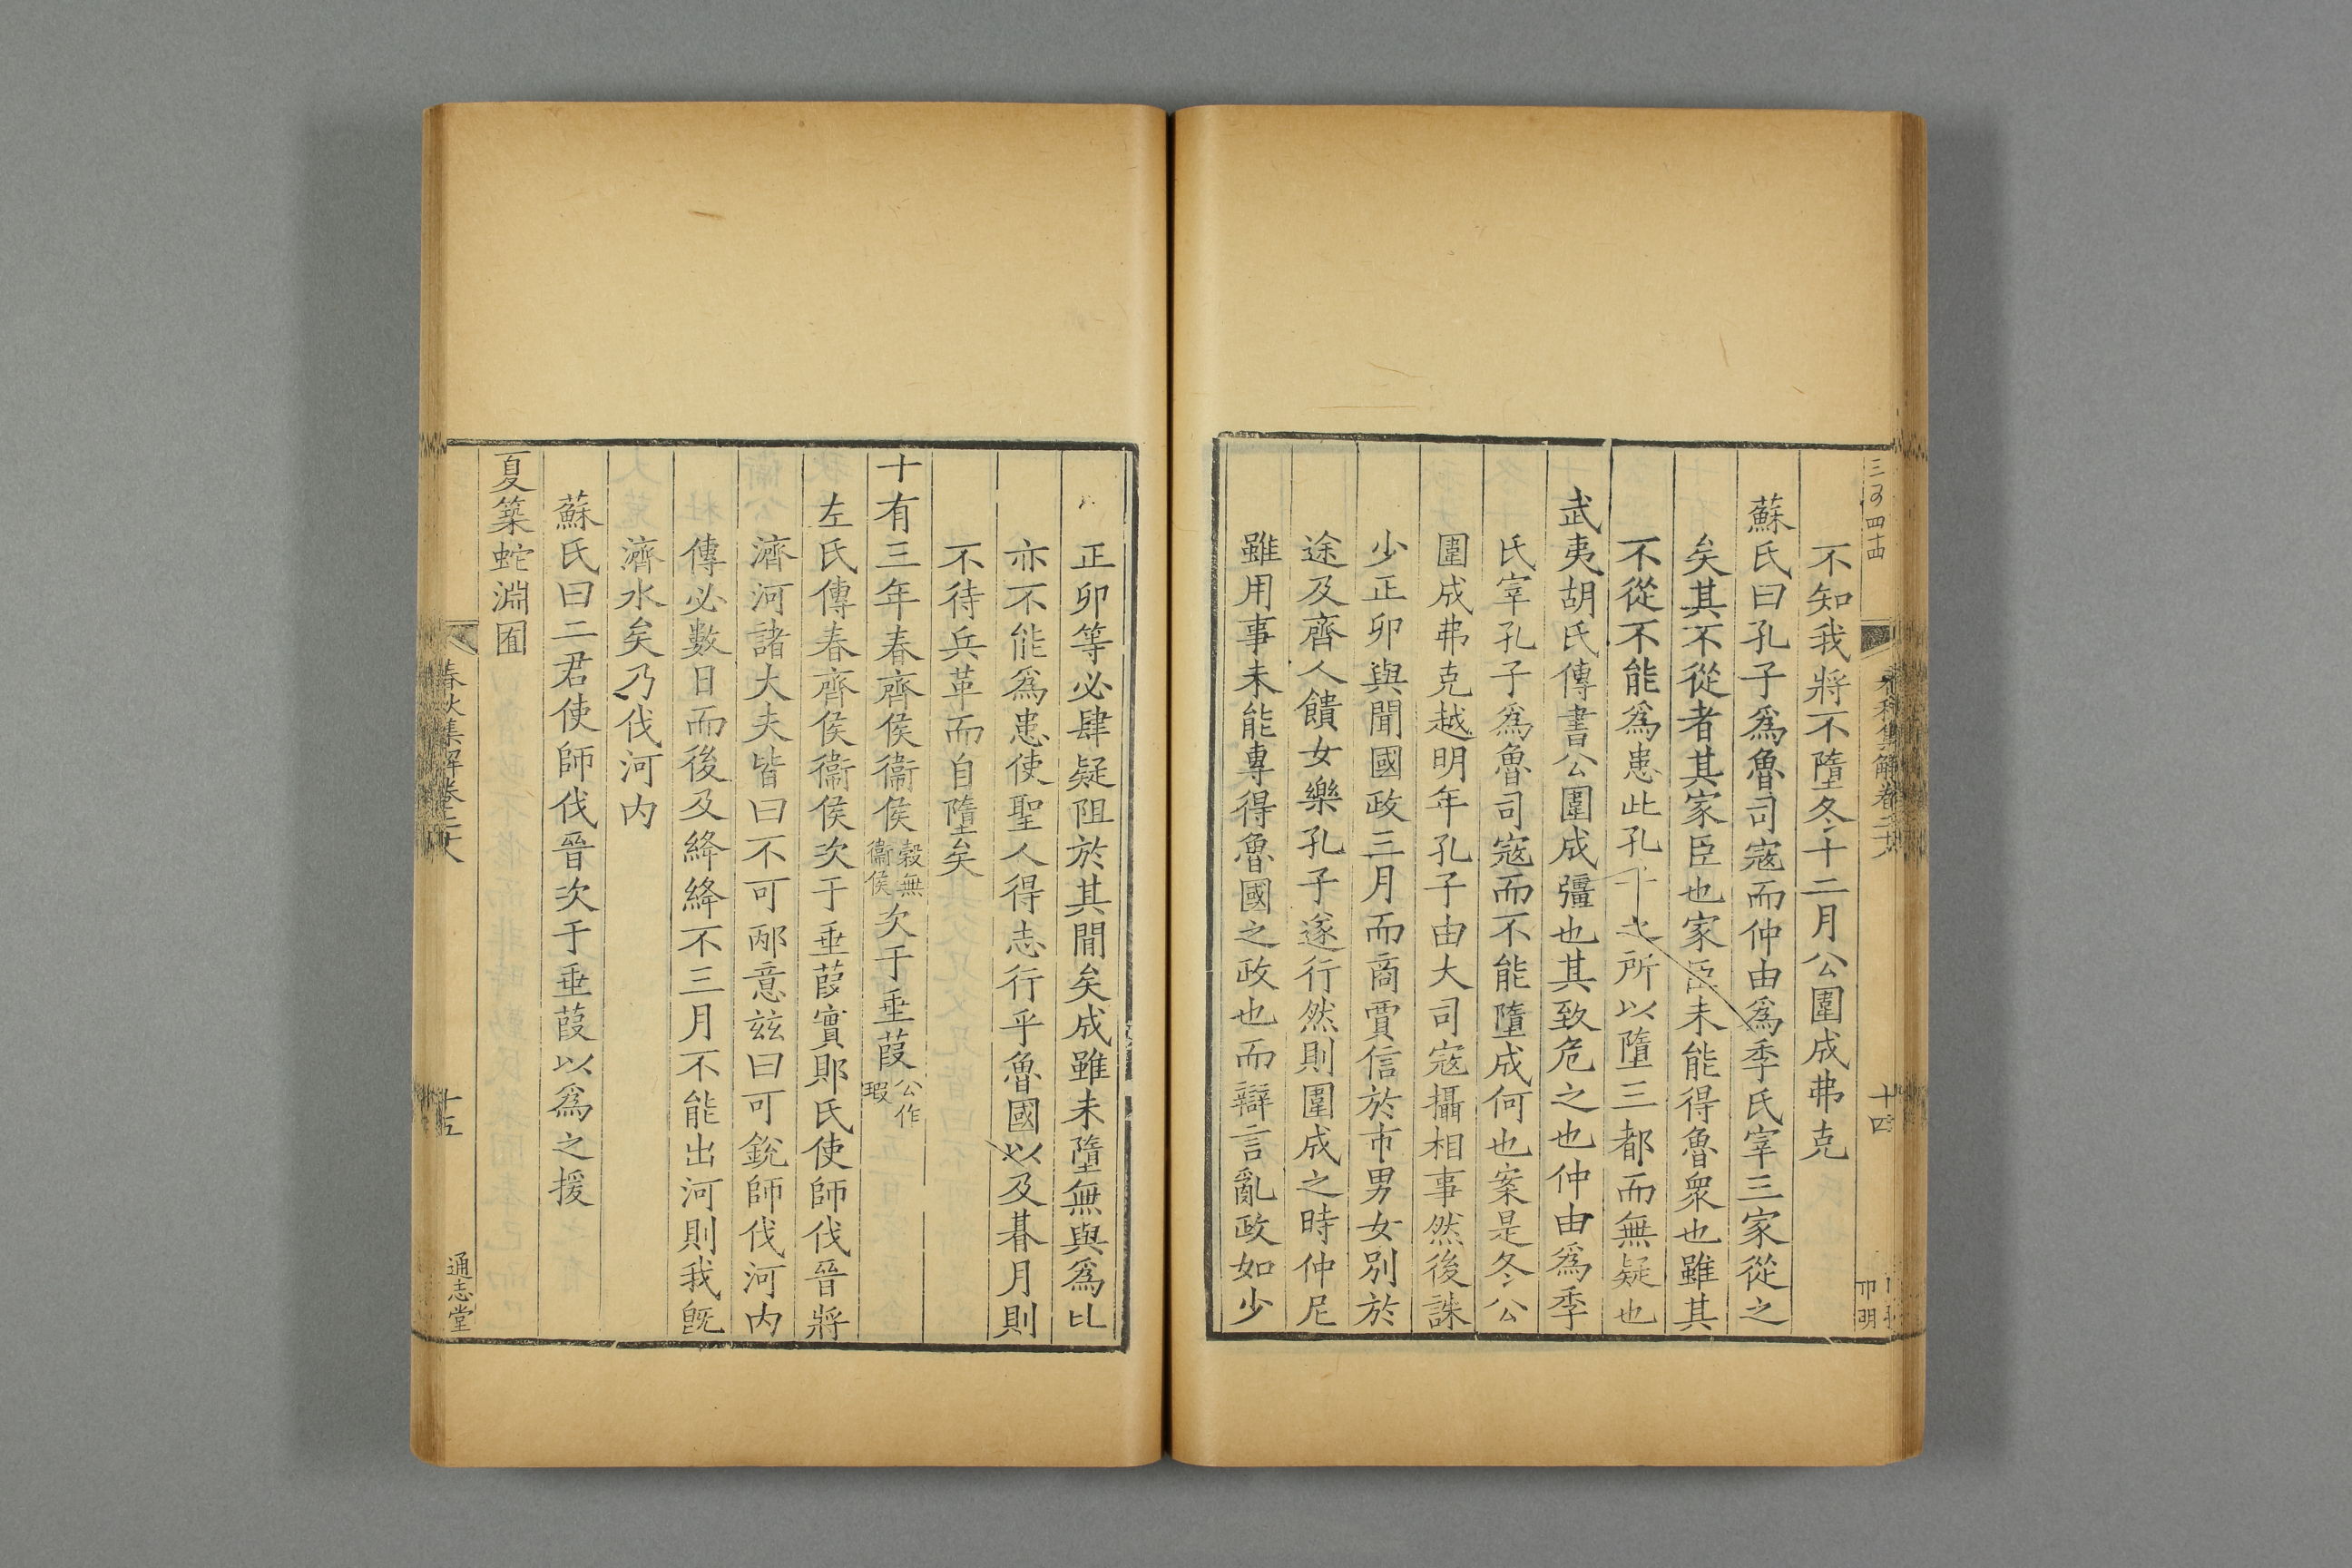 不知我將不墮冬十二月公圍成弗克
蘇氏曰孔子爲魯司宼而仲由爲季氏宰三家從之
矣其不從者其家臣也家臣未能得魯衆也雖其
不從不能爲患此孔子之所以墮三都而無疑也
武夷胡氏傳書公圍成彊也其致危之也仲由爲季
氏宰孔子爲魯司宼而不能墮成何也案是冬公
圍成弗克越明年孔子由大司宼攝相事然後誅
少正卯與聞國政三月而商賈信於市男女別於
途及齊人饋女樂孔子遂行然則圍成之時仲尼
雖用事未能專得魯國之政也而辯言亂政如少
正卯等必肆疑阻於其閒矣成雖未墮無與爲比
亦不能爲患使聖人得志行乎魯國以及朞月則
不待兵革而自墮矣
十有三年春齊侯衞侯穀無衞侯次于垂葭公作瑕
左氏傳春齊侯衞侯次于垂葭實郹氏使師伐晉將
濟河諸大夫皆曰不可邴意兹曰可銳師伐河内
傳必數日而後及絳絳不三月不能出河則我旣
濟水矣乃伐河内
蘇氏曰二君使師伐晉次于垂葭以爲之援
夏築蛇淵囿
春秋集解卷二十八
十五
通志堂
春秋集解卷二十八
十四